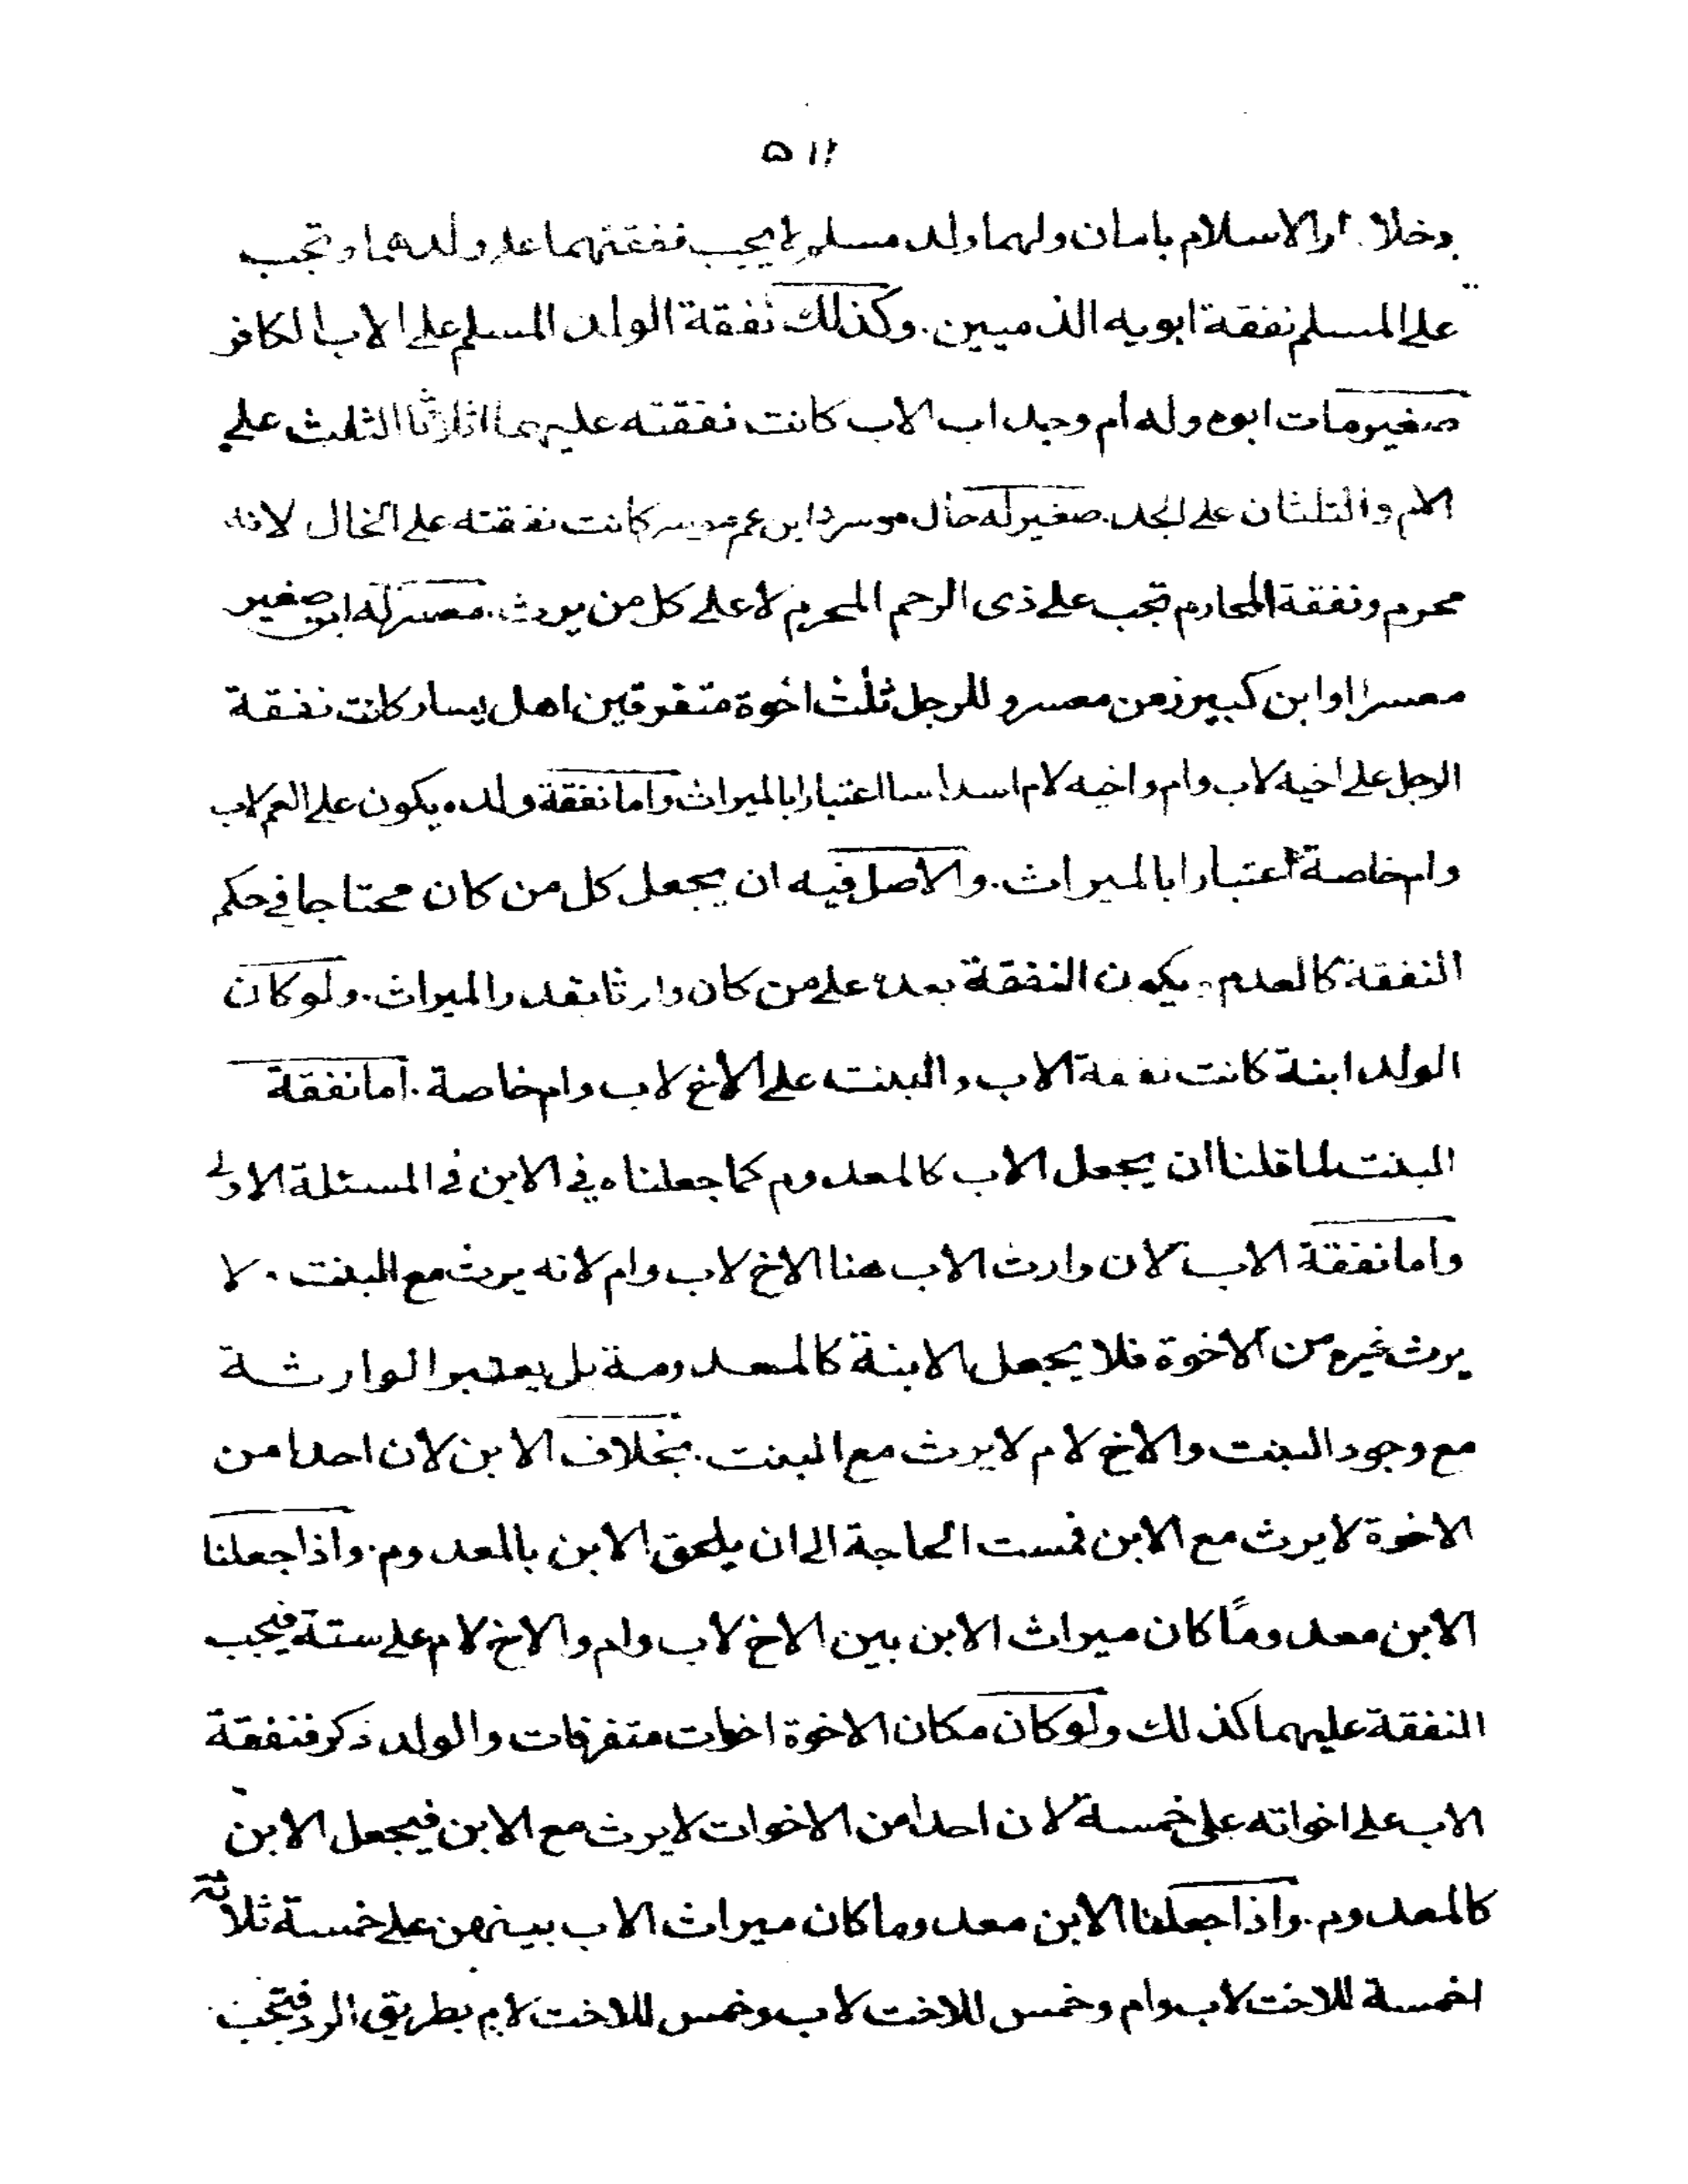 ٥١١
دخلا دار الاسلام بامان ولهما ولد مسلم لا يجب نفقتهما على ولدهما وتجب
على المسلم نفقة ابويه الذميين. وكذلك نفقة الولد المسلم على الاب الكافر
صغير مات ابوه وله أم وجد اب الاب كانت نفقته عليهما اثلاثا الثلث على
الام والثلثان على الجد. صغير له خال موسر وابن عم موسر كانت نفقته على الخال لانه
محرم ونفقة المحارم تجب على ذى الرحم المحرم لا على كل من يرث. معسر له ابن صغير
معسرا او ابن كبير زمن معسر و للرجل ثلث اخوة متفرقين اهل يسار كانت نفقة
الرجل على اخيه لاب وام واخيه لام اسداسا اعتبارا بالميراث واما نفقة ولده يكون على العم لاب
وام خاصة اعتبارا بالميراث. والاصل فيه ان يجعل كل من كان محتاجا في حكم
النفقة كالعدم ويكون النفقة بعده على من كان وارثا بقدر الميراث. ولو كان
الولد ابنة كانت نفقة الاب والبنت على الاخ لاب وام خاصة. اما نفقة
البنت لما قلنا ان يجعل الاب كالمعدوم كما جعلناه في الابن في المسئلة الاولى
واما نفقة الاب لان وارث الاب هنا الاخ لاب وام لانه يرث مع البنت. لا
يرث غيره من الاخوة فلا يجعل الابنة كالمعدومة بل يعتبر الوارثة
مع وجود البنت والاخ لام لا يرث مع البنت. بخلاف الابن لان احدا من
الاخوة لا يرث مع الابن فمست الحاجة الى ان يلحق الابن بالمعدوم. واذا جعلنا
الابن معدومًا كان ميراث الابن بين الاخ لاب وام والاخ لام على ستة فيجب
النفقة عليهما كذلك ولو كان مكان الاخوة اخوات متفرقات والولد ذكر فنفقة
الاب على اخواته على خمسة لان احدا من الاخوات لا يرث مع الابن فيجعل الابن
كالمعدوم. واذا جعلنا الابن معدوما كان ميراث الاب بينهن على خمسة ثلاثة
اخمسة للاخت لاب وام وخمس للاخت لاب وخمس للاخت لام بطريق الرد فتجب